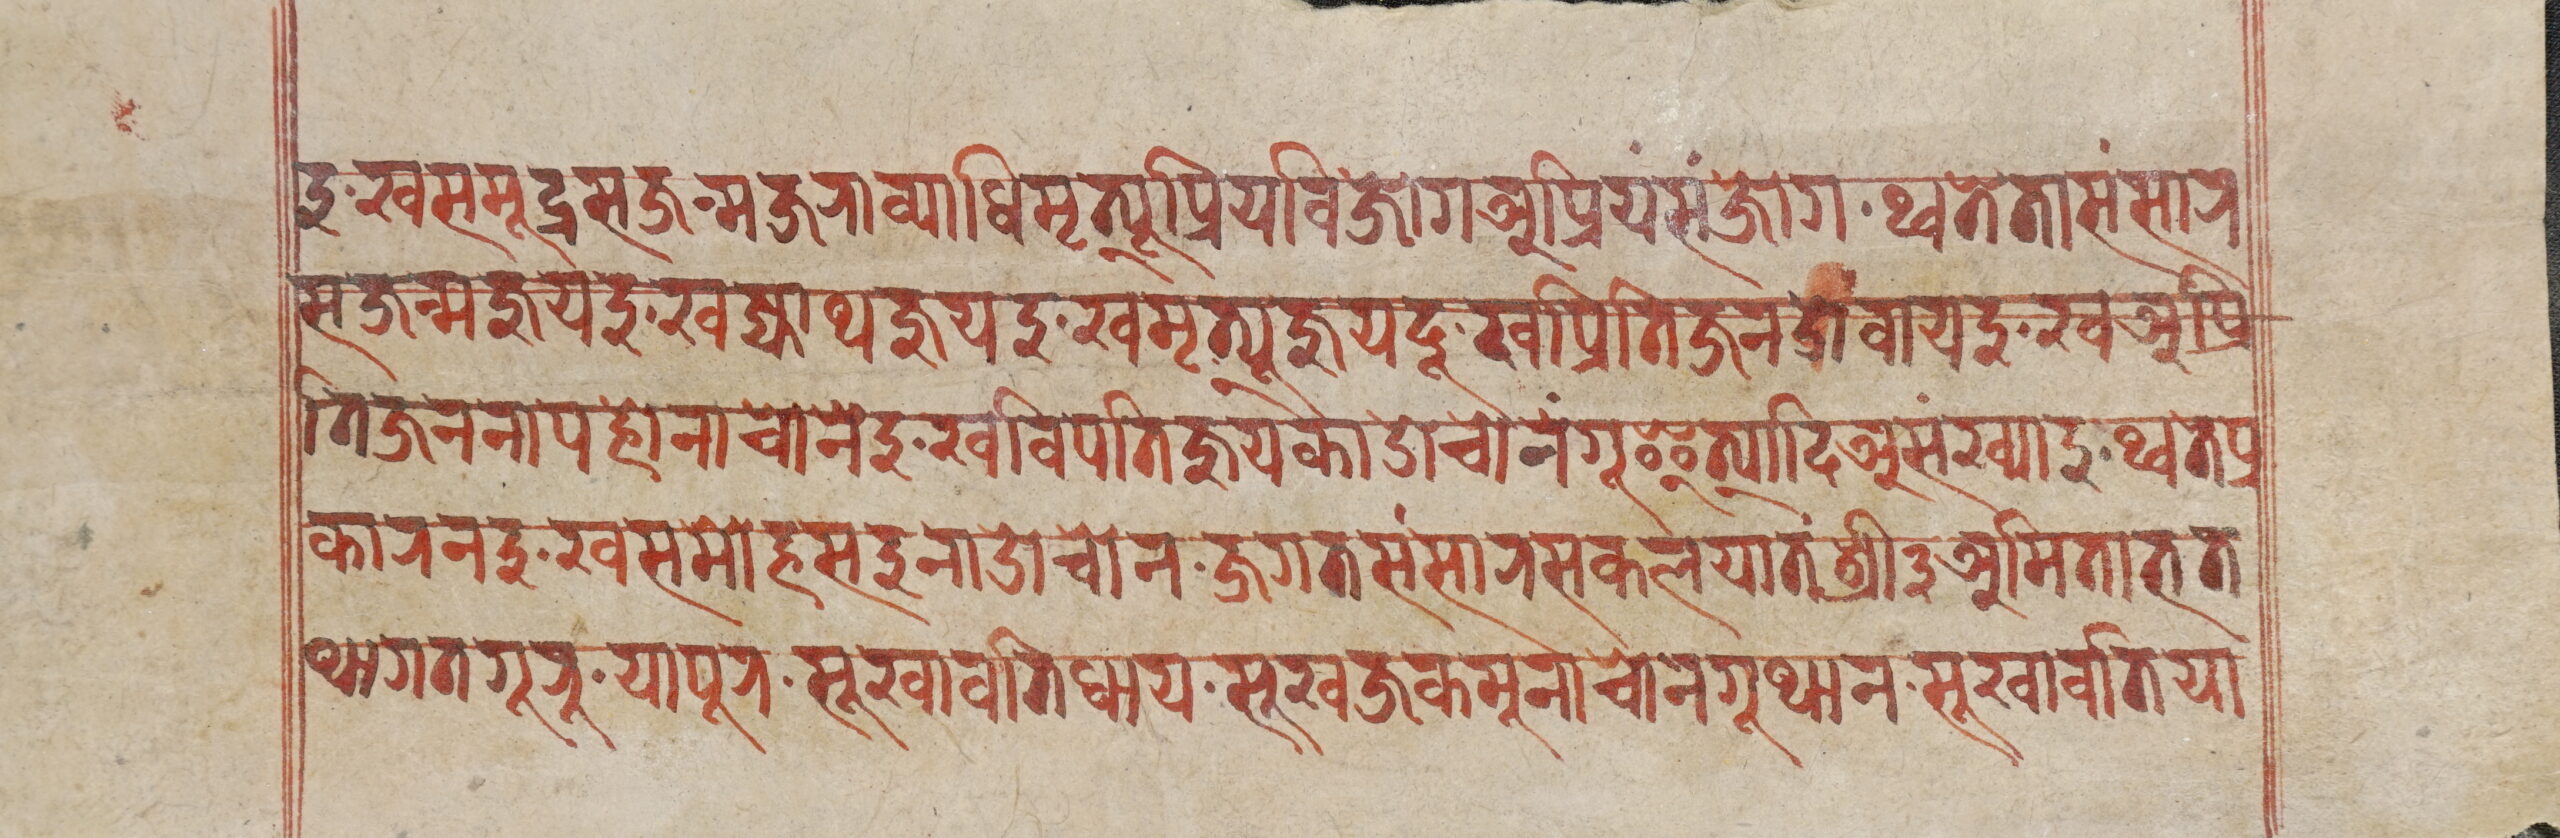 दु·खसमूद्रसज·न्मजराव्याधिमृत्यूप्रियविजोगअप्रियंसंजोग·थ्वतेतासंसार
सजन्मजूयदु·खब्याथजूयदु·खमृत्यूजूयदू·खप्रितिजनत्रोंवायदु·खअप्रि
तिजननापह्रोनाचोनेदु·खविपतिजूयकाडाचोनंगू॰॰त्यादिअसंख्यादु·थ्वतप्र
कारनदु·खसमोहसदुनाडाचोन·जगतसंसारसकलयातंश्री३अमिताभत
थागतगूरू·यापूर·सूखावतिधाय·सूखजकमूनाचोनगूथान·सूखावतिया